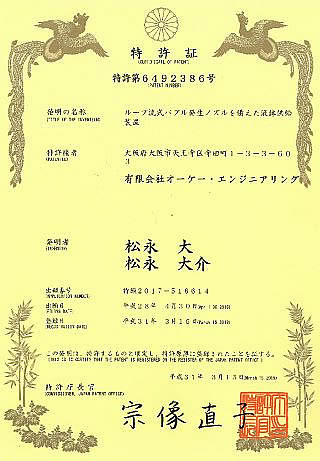 特許証
(CERTIFICATE OF PATENT)
特許第6492386号
(PATENT NUMBER)
発明の名称
(TITLE OF THE INVENTION)
ループ流式バブル発生ノズルを備えた液体供給
装置
特許権者
(PATENTEE)
大阪府大阪市天王寺区寺田町1-3-3-60
3
有限会社オーケー・エンジニアリング
発明者
(INVENTOR)
松永 大
松永 大介
出願番号
(APPLICATION NUMBER)
特願2017-516614
出願日
(FILING DATE)
平成28年 4月30日(April 30,2016)
登録日
(REGISTRATION DATE)
平成31年 3月15日(March 15,2019)
この発明は、特許するものと確定し、特許原簿に登録されたことを証する。
(THIS IS TO CERTIFY THAT THE PATENT IS REGISTERED ON THE REGISTER OF THE JAPAN PATENT OFFICE.)
平成31年 3月15日(March 15,2019)
特許庁長官
(COMMISSIONER, JAPAN PATENT OFFICE)
宗像直子